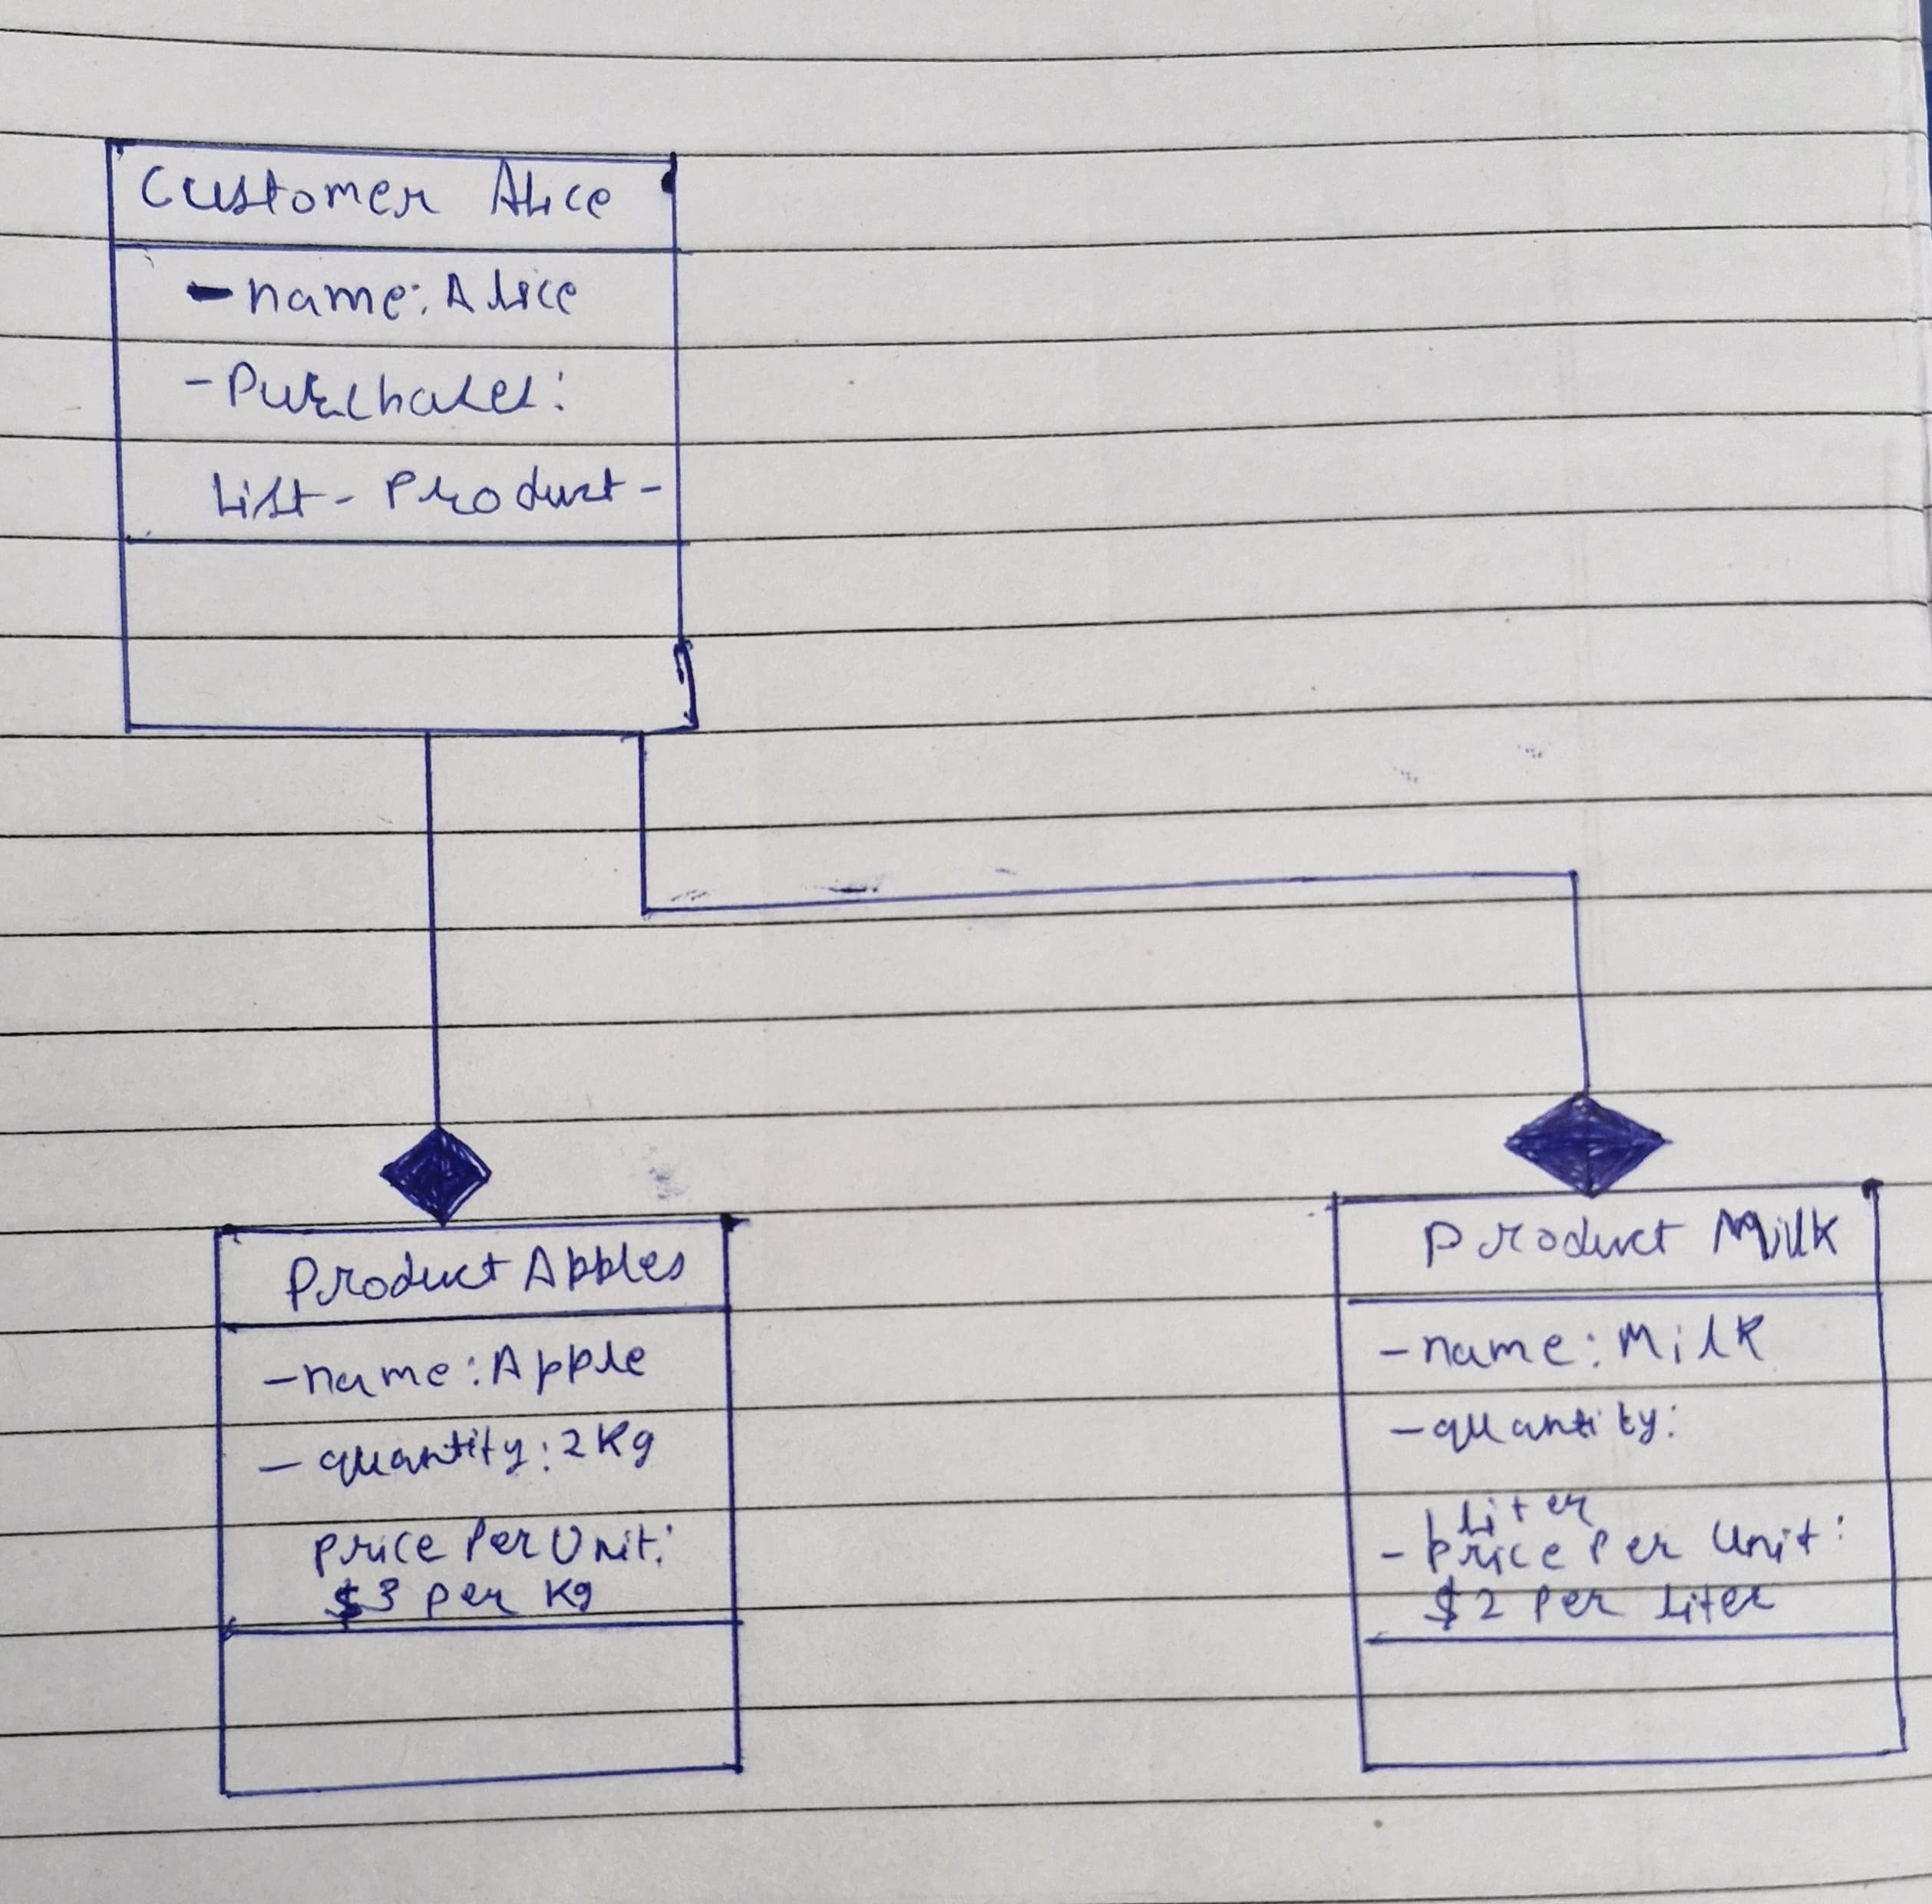 Customer Alice
- name: Alice
- Purchases:
List - Product -
Product Apples
- name: Apple
- quantity: 2 Kg
price Per Unit:
$3 per Kg
Product Milk
- name: Milk
- quantity:
1 Liter
- Price Per Unit:
$2 Per Liter